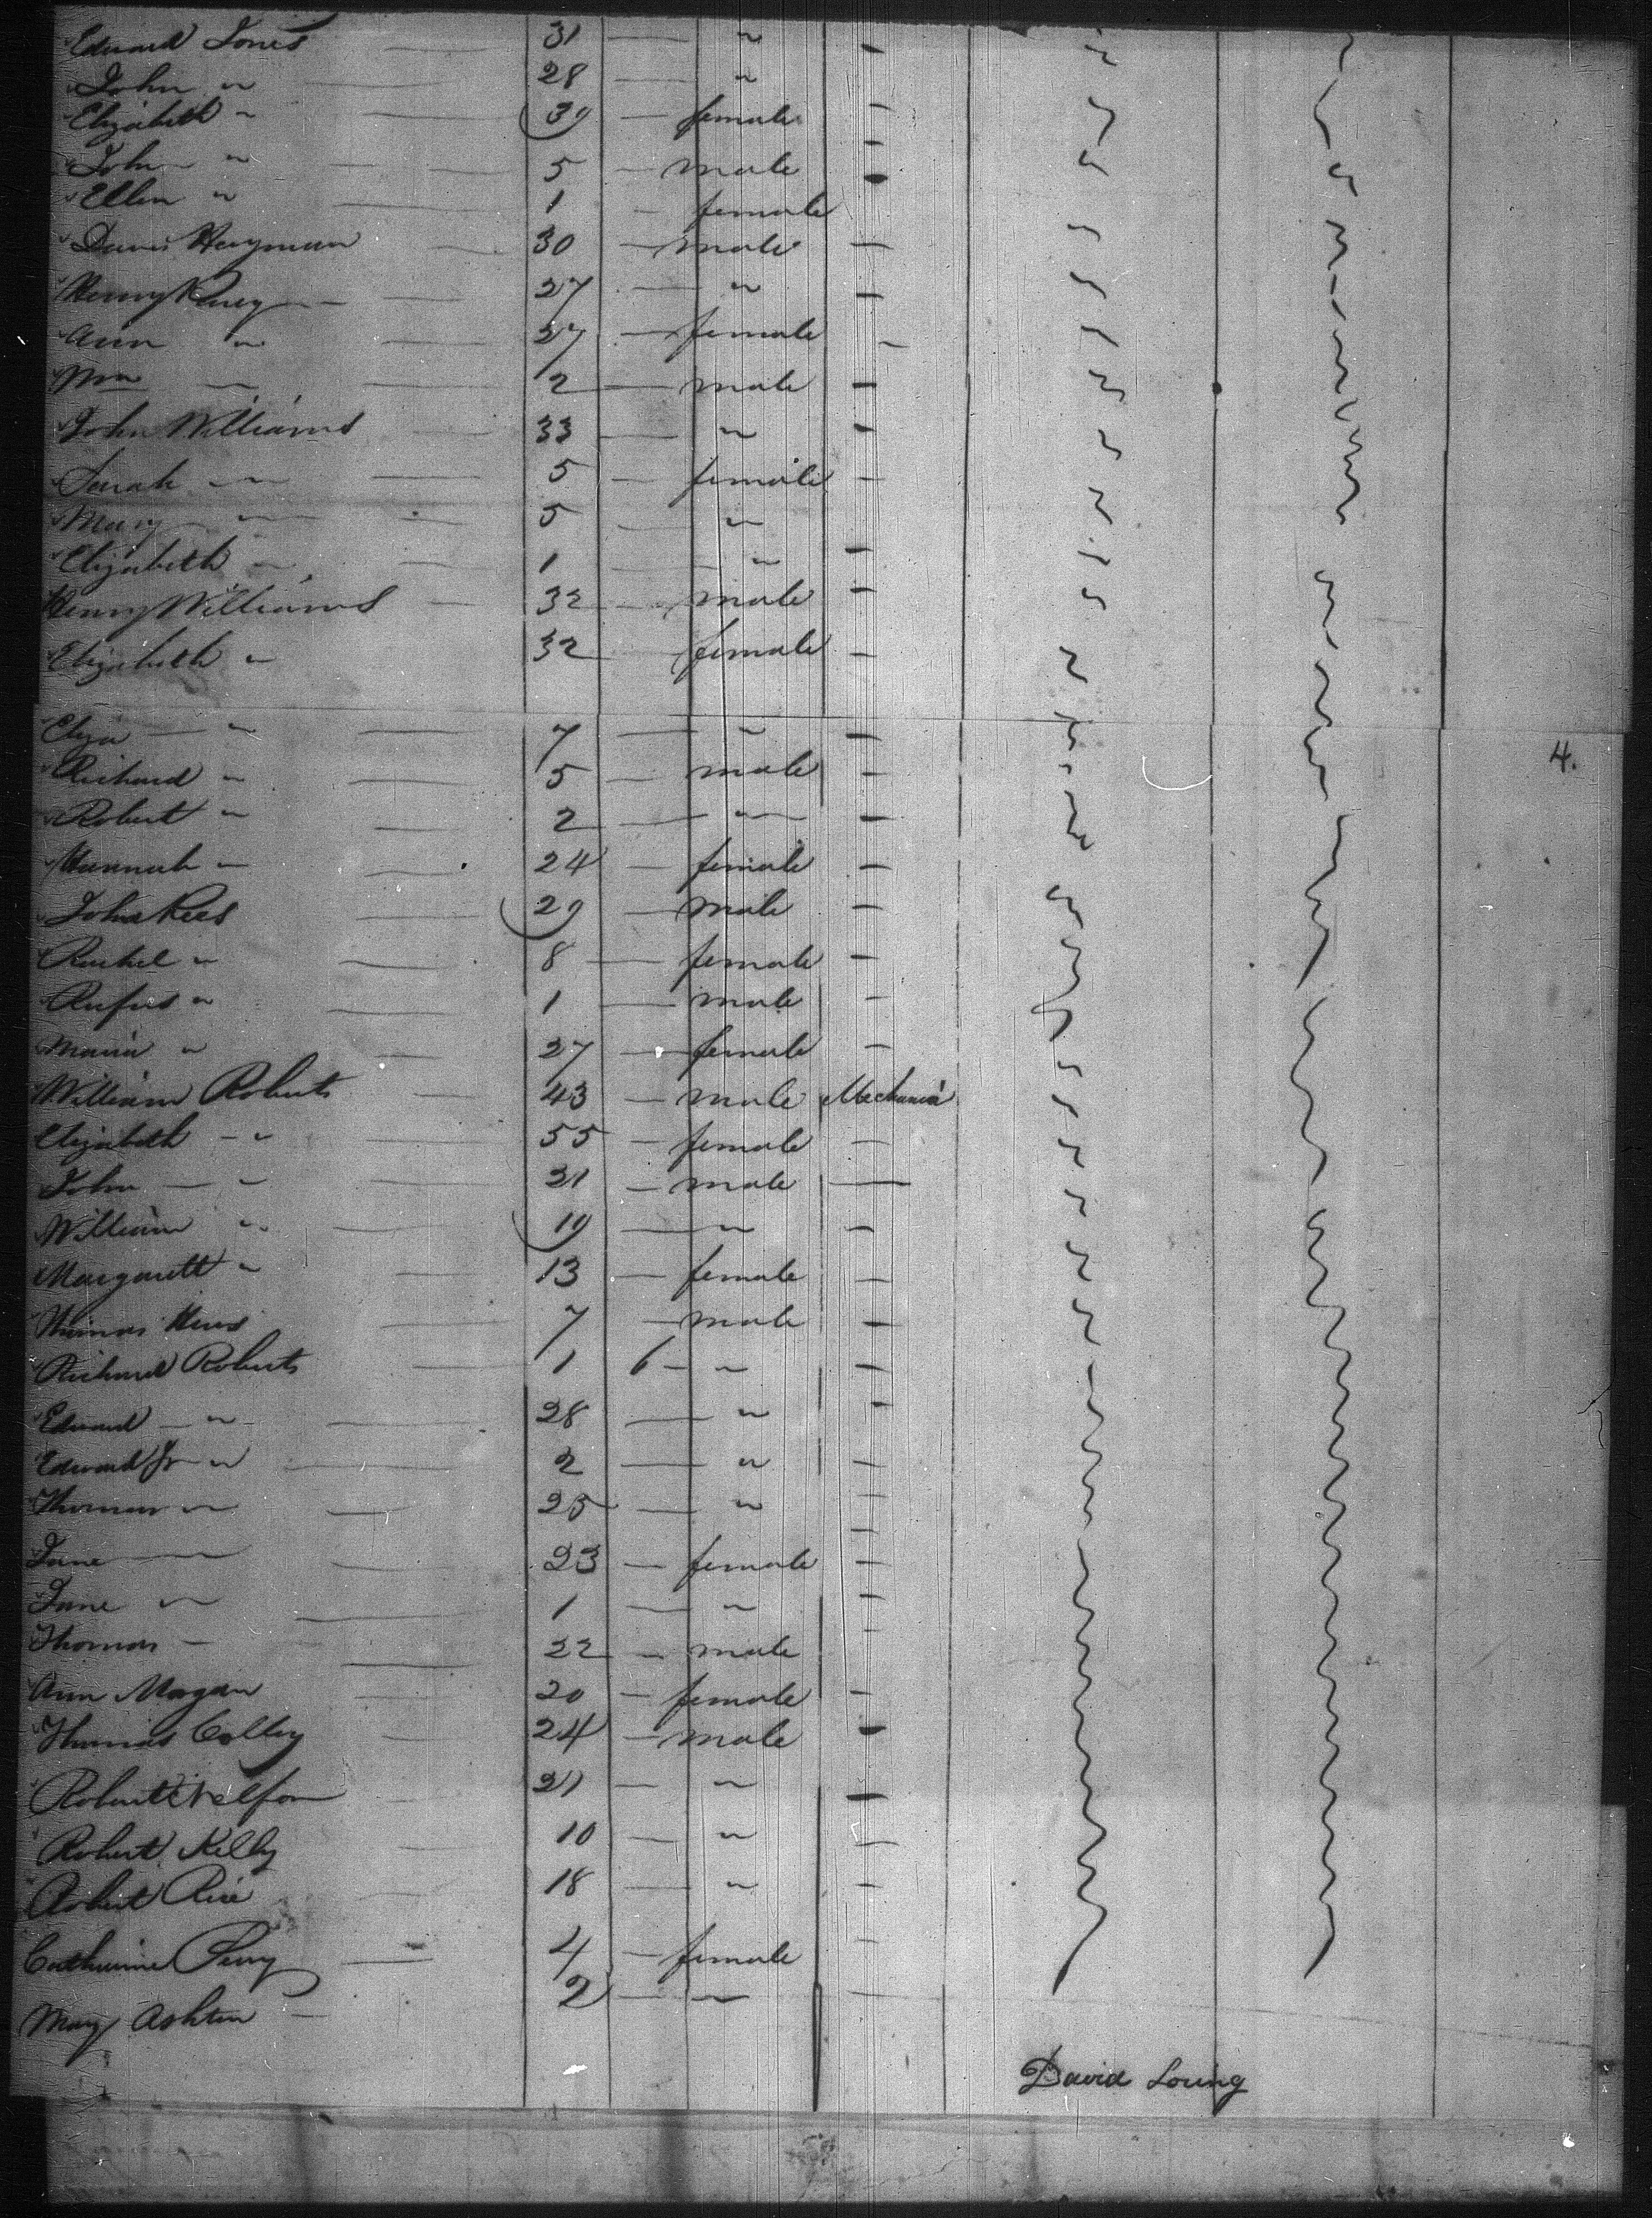 Edward Jones 31 — "
John " 28 — "
Elizabeth " 39 — female —
John " 5 — male —
Ellen " 1 — female
Heyman 30 — male —
Henry 27 — " —
Ann " 27 — female —
Wm — 2 — male —
John Williams 33 — " —
Sarah " 5 — female —
Mary " 5 — "
Elizabeth " 1 — " —
Henry Williams 32 — male —
Elizabeth " 32 — female —
Eliza — " 7 — " —
Richard " 5 — male —
Robert " 2 — " —
Hannah " 24 — female —
John Rees 29 — male —
Rachel " 8 — female —
Rufus " 1 — male —
Maria " 27 — female —
William Roberts 43 — male Mechanic
Elizabeth — " 55 — female —
John — " 21 — male —
William " 19 — " —
Margarett " 13 — female —
Thomas 7 — male —
Richard Roberts 1 6 — " —
Edward — " 28 — " —
Edward Jr " 2 — " —
Thomas " 25 — " —
Jane — 23 — female —
Jane " 1 — " —
Thomas — 22 — male —
Ann Morgan 20 — female —
Thomas Colley 24 — male —
Robert Telfor 21 — " —
Robert Kelly 10 — " —
Robert Rice 18 — " —
Catherine Perry — 4 — female —
Mary Ashton — 2 — " —
4.
David Loring